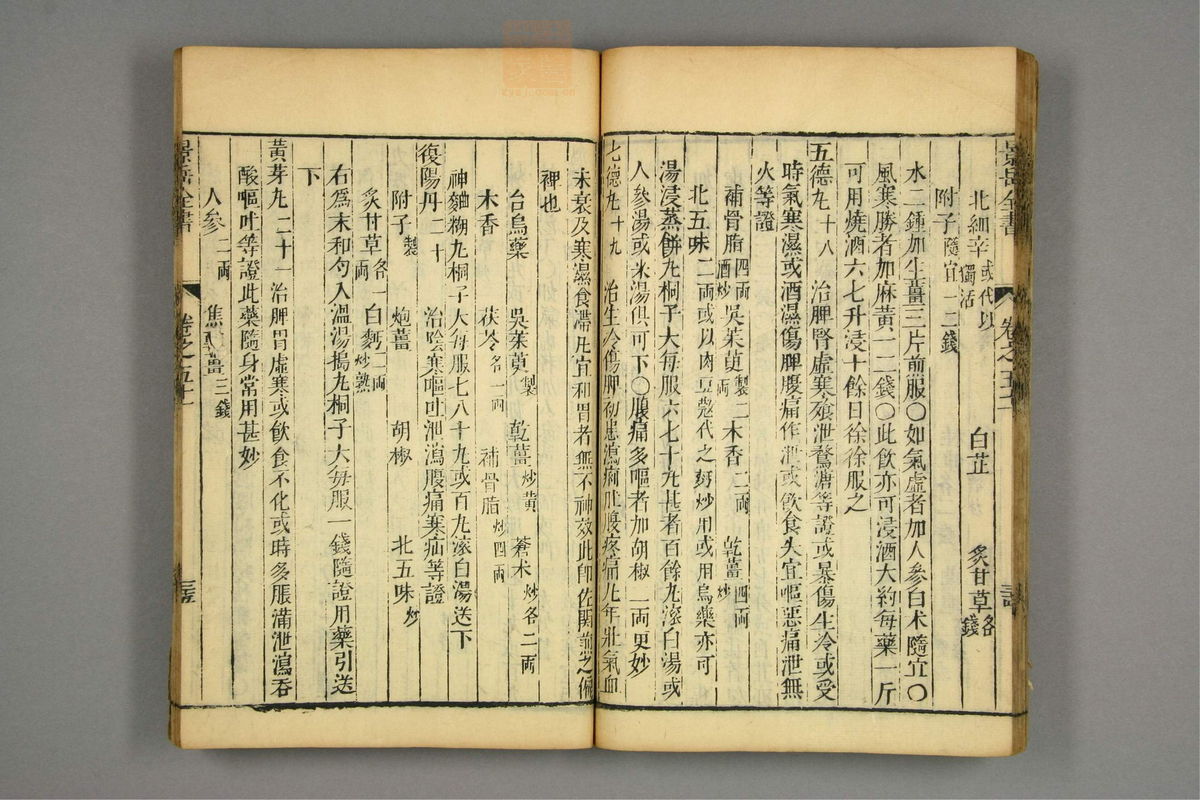 景岳全書
卷之五十一
北細辛或代以獨活
白芷
炙甘草各錢
附子隨宜一二錢
水二鍾加生薑三片煎服〇如氣虛者加人參白朮隨宜〇
風寒勝者加麻黃一二錢〇此飲亦可浸酒大約每藥一斤
可用燒酒六七升浸十餘日徐徐服之
五德丸十八 治脾腎虛寒飧泄鶩溏等證或暴傷生冷或受
時氣寒濕或酒濕傷脾腹痛作泄或飲食失宜嘔惡痛泄無
火等證
補骨脂四兩酒炒 吳茱萸製二兩 木香二兩 乾薑四兩炒
北五味二兩或以肉豆蔻代之麪炒用或用烏藥亦可
湯浸蒸餅丸桐子大每服六七十丸甚者百餘丸滚白湯或
人參湯或米湯俱可下〇腹痛多嘔者加胡椒一兩更妙
七德丸十九 治生冷傷脾初患瀉痢肚腹疼痛凡年壯氣血
未衰及寒濕食滯凡宜和胃者無不神效此即佐關煎之偏
裨也
台烏藥 吳茱萸製 乾薑炒黃 蒼朮炒各二兩
木香 茯苓各一兩 補骨脂炒四兩
神麯糊丸桐子大每服七八十丸或百丸滚白湯送下
復陽丹二十 治陰寒嘔吐泄瀉腹痛寒疝等證
附子製 炮薑 胡椒 北五味炒
炙甘草各一兩 白麪二兩炒熟
右爲末和勻入溫湯搗丸桐子大每服一錢隨證用藥引送
下
黃芽丸二十一 治脾胃虛寒或飲食不化或時多脹滿泄瀉吞
酸嘔吐等證此藥隨身常用甚妙
人參二兩 焦乾薑三錢
景岳全書
卷之五十一